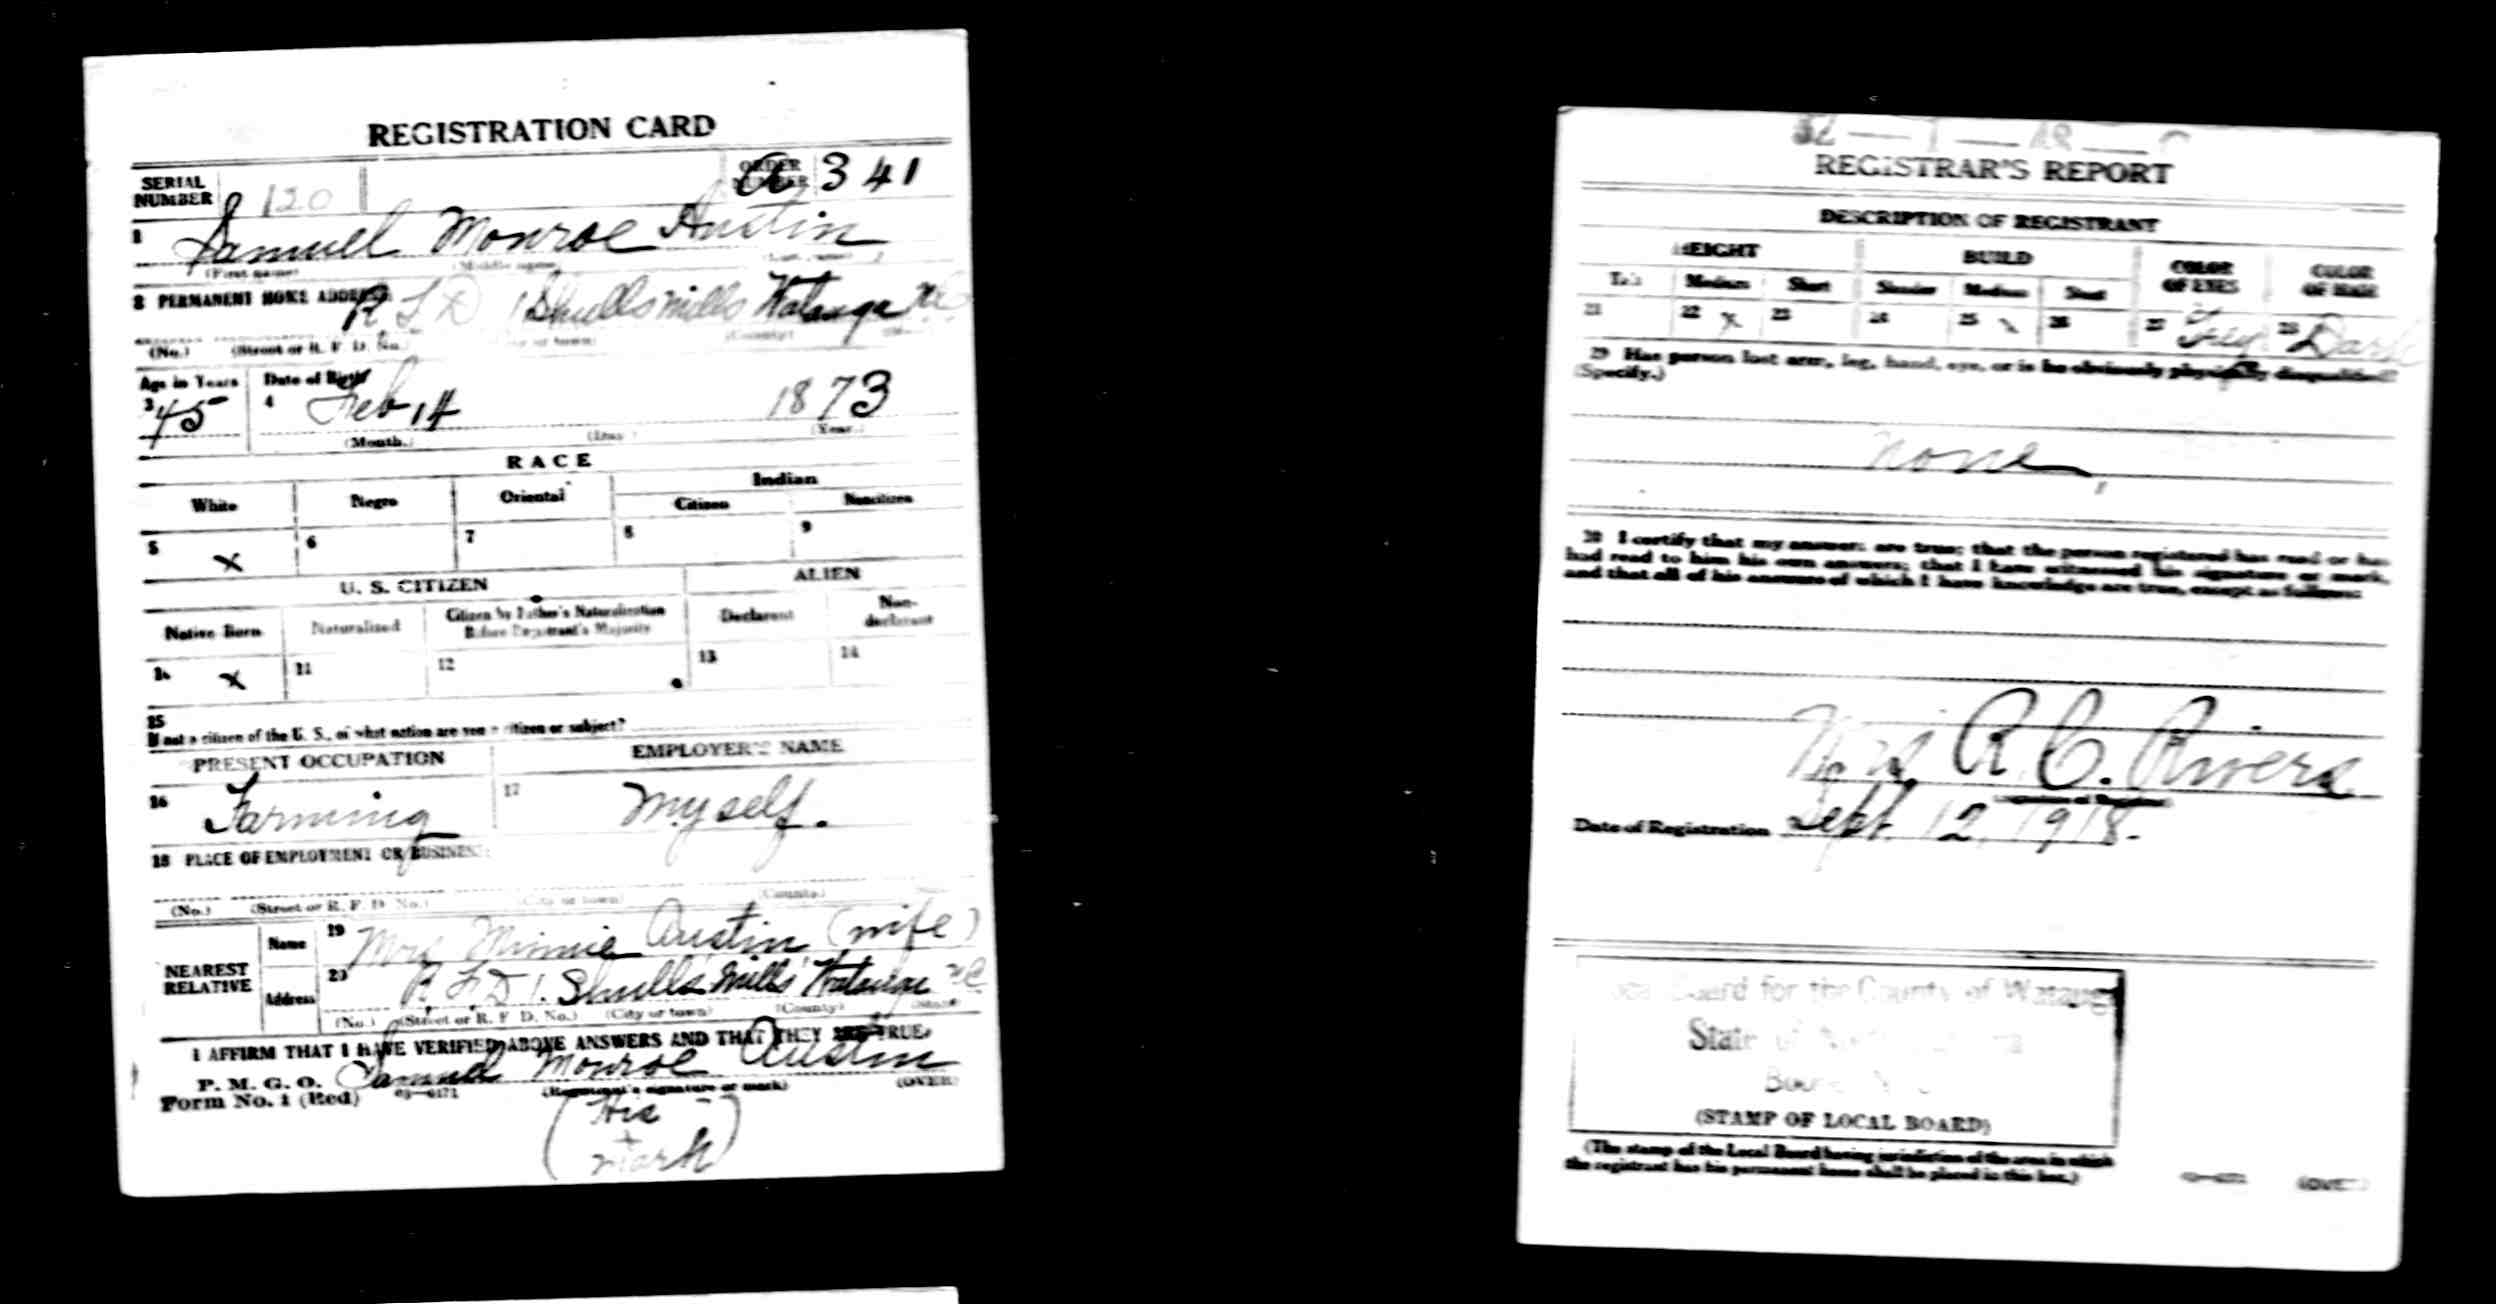 REGISTRATION CARD
SERIAL NUMBER 120 ORDER NUMBER a 341
1 Samuel Monroe Austin
(First name) (Middle name) (Last name)
2 PERMANENT HOME ADDRESS
R F D 1 Shulls Mills Watauga NC
(No.) (Street or R. F. D. No.) (City or town) (County)
Age in Years Date of Birth
3 45 4 Feb 14 1873
(Month.) (Day.) (Year.)
RACE
White Negro Oriental Indian
Citizen Noncitizen
5 X 6 7 8 9
U. S. CITIZEN ALIEN
Native Born Naturalized Citizen by Father's Naturalization Before Registrant's Majority Declarant Non-declarant
10 X 11 12 13 14
15
If not a citizen of the U. S., of what nation are you a citizen or subject?
PRESENT OCCUPATION EMPLOYER'S NAME
16 Farming 17 Myself.
18 PLACE OF EMPLOYMENT OR BUSINESS:
(No.) (Street or R. F. D. No.) (City or town) (County)
NEAREST RELATIVE Name 19 Mrs Minnie Austin (wife)
Address 20 R. F. D 1. Shulls Mills Watauga NC
(No.) (Street or R. F. D. No.) (City or town) (County) (State)
I AFFIRM THAT I HAVE VERIFIED ABOVE ANSWERS AND THAT THEY ARE TRUE.
P. M. G. O.
Form No. 1 (Red) 03—6171 Samuel Monroe Austin
(Registrant's signature or mark) (OVER)
(His
+
mark)
REGISTRAR'S REPORT
DESCRIPTION OF REGISTRANT
HEIGHT BUILD COLOR OF EYES COLOR OF HAIR
Tall Medium Short Slender Medium Stout
21 22 X 23 24 25 \ 26 27 Grey 28 Dark
29 Has person lost arm, leg, hand, eye, or is he obviously physically disqualified?
(Specify.)
none
30 I certify that my answers are true; that the person registered has read or has
had read to him his own answers; that I have witnessed his signature or mark,
and that all of his answers of which I have knowledge are true, except as follows:
Mrs. R. C. Rivers
(Signature of Registrar)
Date of Registration Sept. 12, 1918.
Local Board for the County of Watauga
State of North Carolina
Boone, N. C.
(STAMP OF LOCAL BOARD)
(The stamp of the Local Board having jurisdiction of the area in which
the registrant has his permanent home shall be placed in this box.)
(OVER)